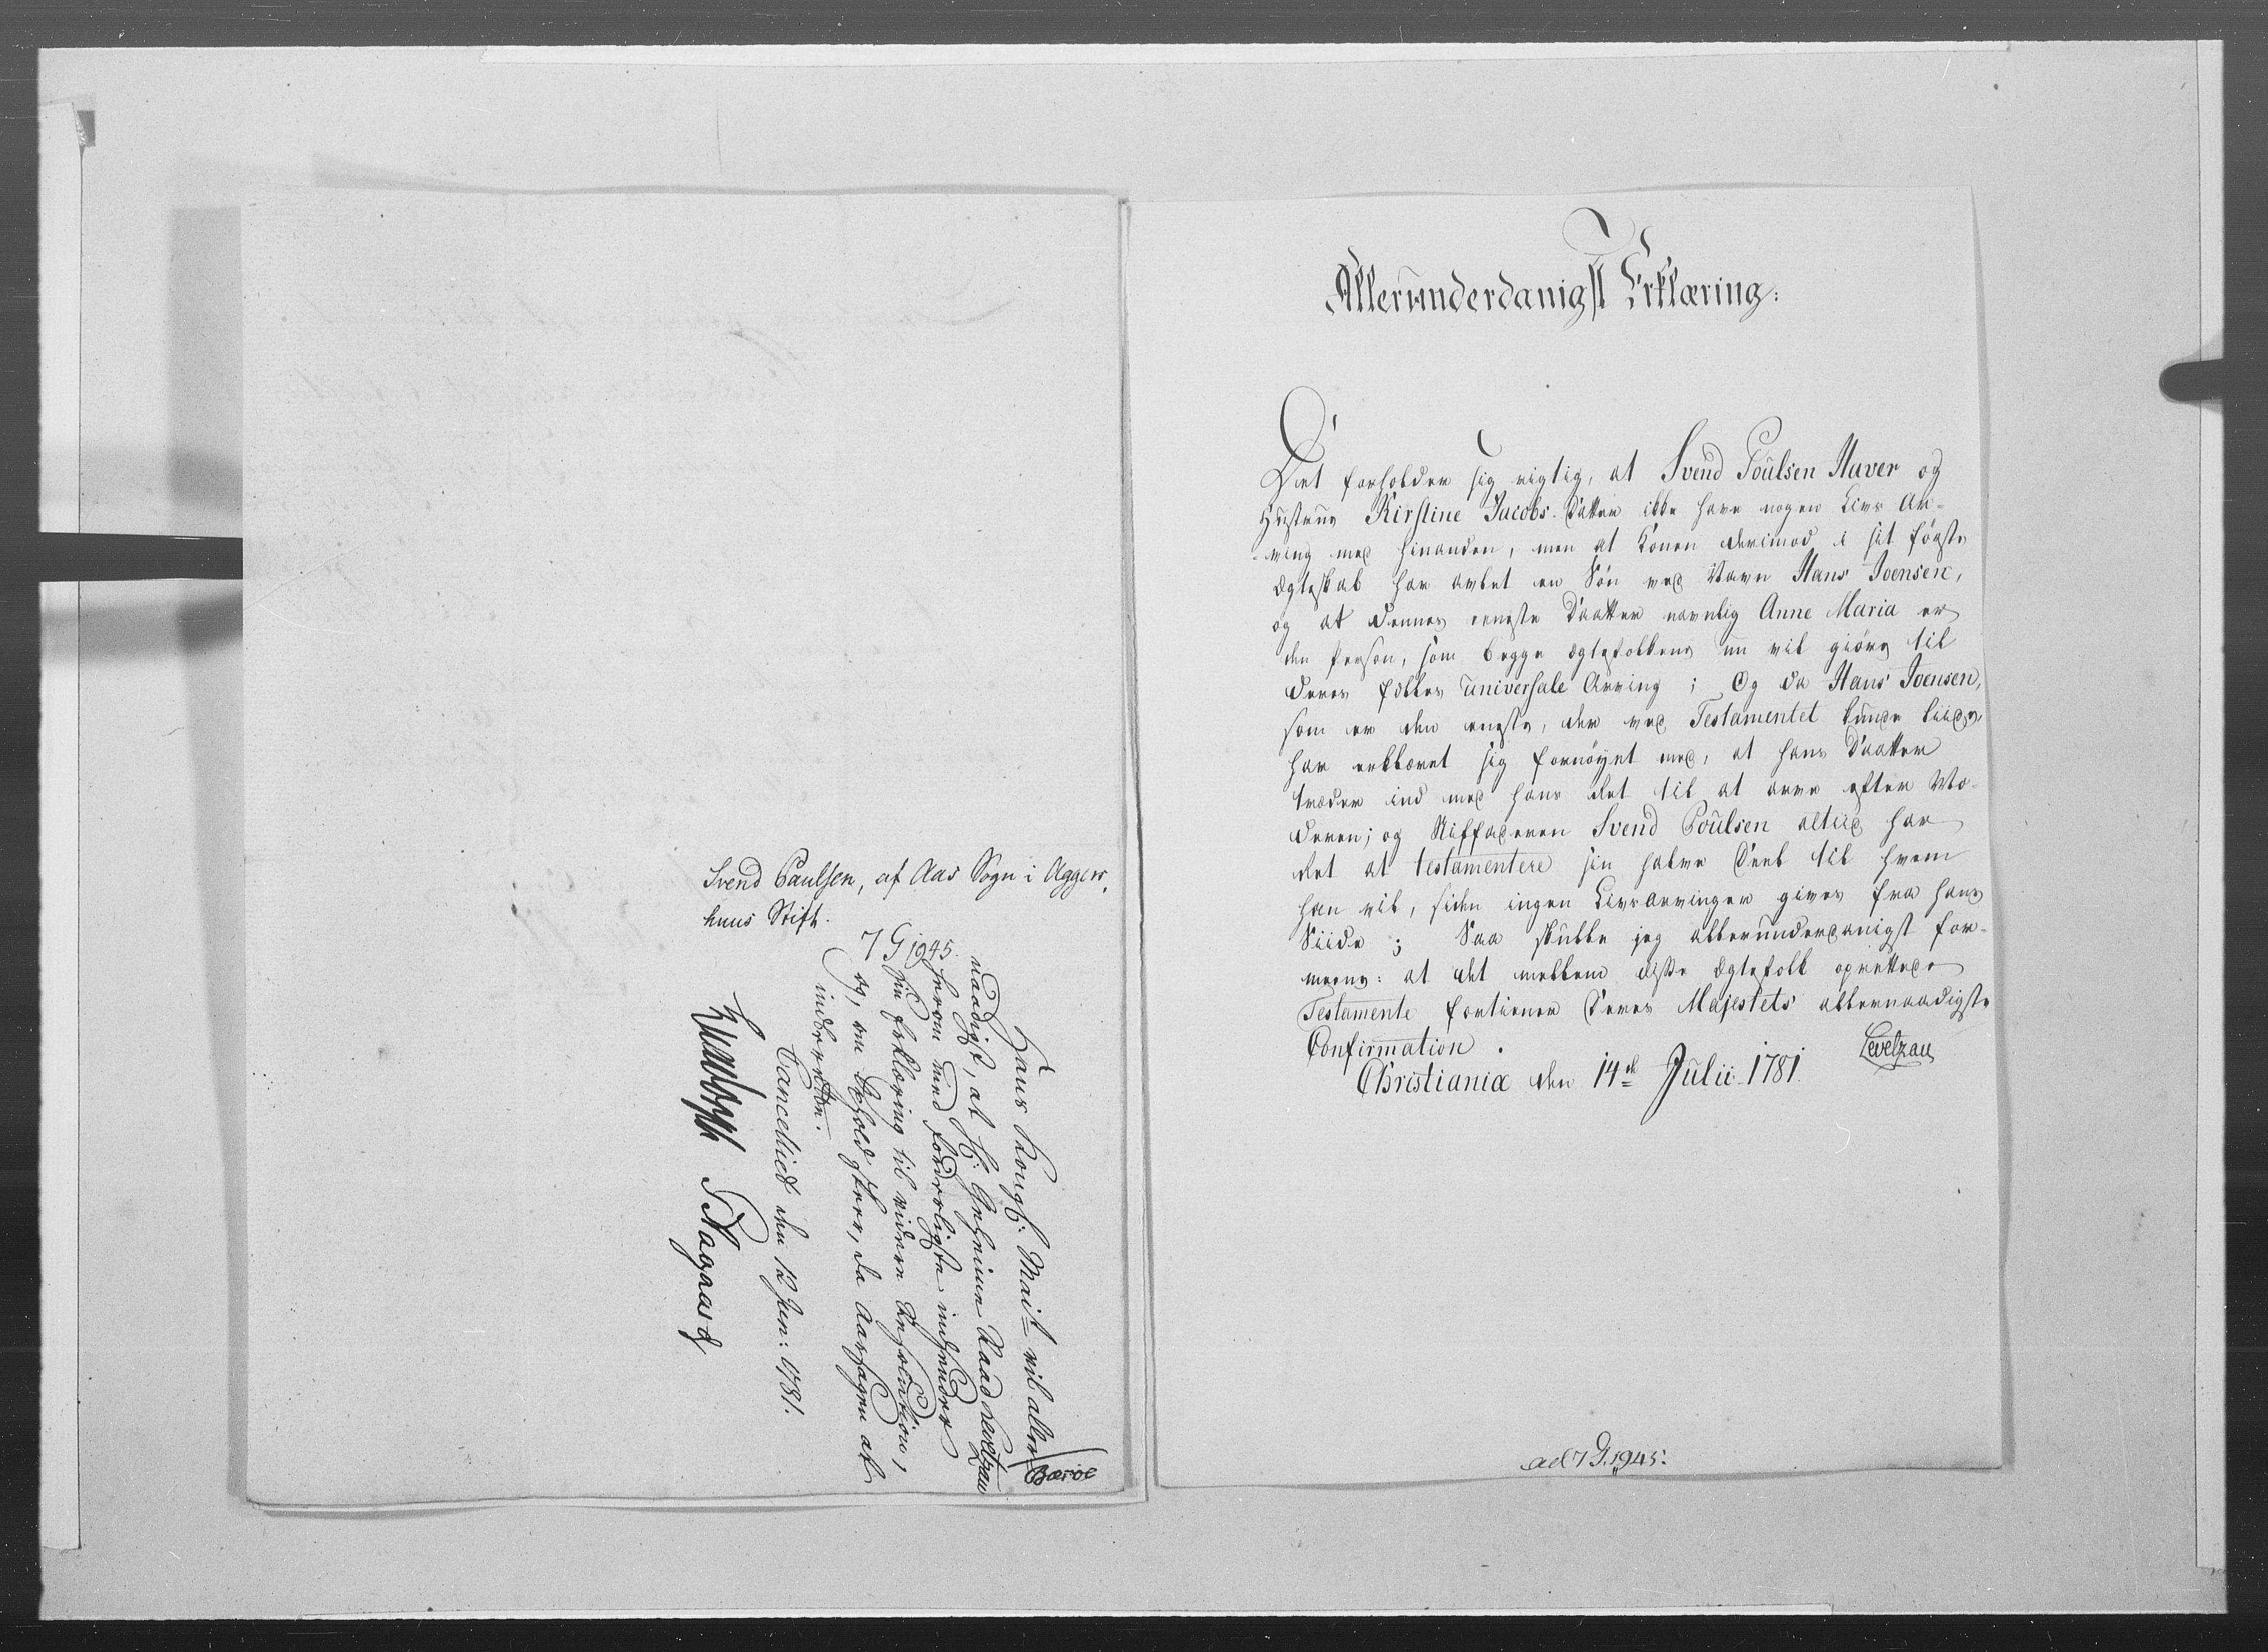 Svend Paulsen, af Aas Sogn i Agger,
huus Stift.
7 G 1945.
Hans Kongl: Mait vil aller
naadigst, at H: Geheime Raad Levetzau
herom med forderligste indsender
sin Erklæring til videre Resolution,
og, om Ophold skeer, da Aarsagen at
indberette.
Cancelliet den 12 Jun: 1781.
Luxdorph P Aagaard
Barøe
Allerunderdanigst Erklæring:
Det forholder sig rigtig, at Svend Poulsen Haver og
Hustrue Kirstine Jacobs Datter ikke have nogen Livs Ar-
-ving med hinanden, men at Konen derimod i sit første
Ægteskab har avlet en Søn ved Navn Hans Joensen,
og at dennes eeneste Daatter navnlig Anne Maria er
den Person, som begge Ægtefolkene nu vil giöre til
deres fælles universale Arving; Og da Hans Joensen,
som er den eneste, der ved Testamentet kunde liide,
har erklæret sig fornøyet med, at hans Daatter
træder ind med hans Ret til at arve efter Mo-
deren; og Stiffaderen Svend Poulsen altiid har
Ret at testamentere sin halve Deel til hvem
han vil, siden ingen Livsarvinger gives fra hans
Siide; Saa skulle jeg allerunderdanigst for-
meene: at det mellem disse Ægtefolk oprettede
Testamente fortiener Deres Majestets allernaadigste
Confirmation.
Levetzau
Christiania den 14de Julii 1781.
ad 7 G. 1945: